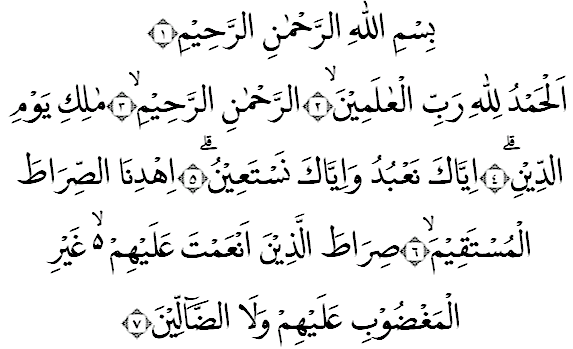 بِسْمِ اللّٰهِ الرَّحْمٰنِ الرَّحِيْمِ ۝١
اَلْحَمْدُ لِلّٰهِ رَبِّ الْعٰلَمِيْنَۙ ۝٢ الرَّحْمٰنِ الرَّحِيْمِۙ ۝٣ مٰلِكِ يَوْمِ
الدِّيْنِۗ ۝٤ اِيَّاكَ نَعْبُدُ وَاِيَّاكَ نَسْتَعِيْنُۗ ۝٥ اِهْدِنَا الصِّرَاطَ
الْمُسْتَقِيْمَۙ ۝٦ صِرَاطَ الَّذِيْنَ اَنْعَمْتَ عَلَيْهِمْ ەۙ غَيْرِ
الْمَغْضُوْبِ عَلَيْهِمْ وَلَا الضَّاۤلِّيْنَ ۝٧